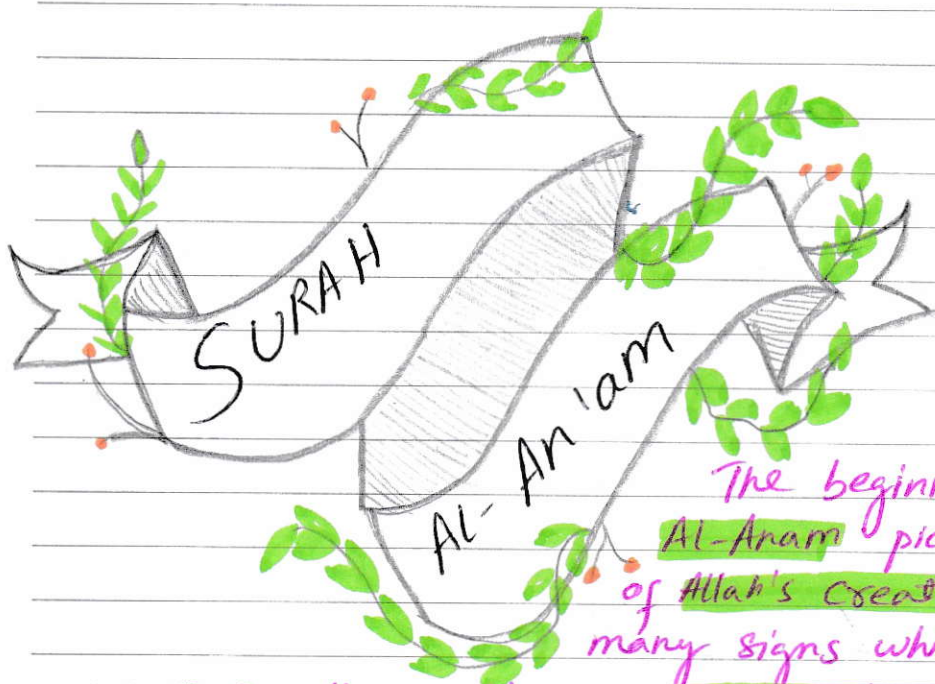 SURAH
Al-An'am
The beginn
Al-Anam pic
of Allah's creat
many signs wh